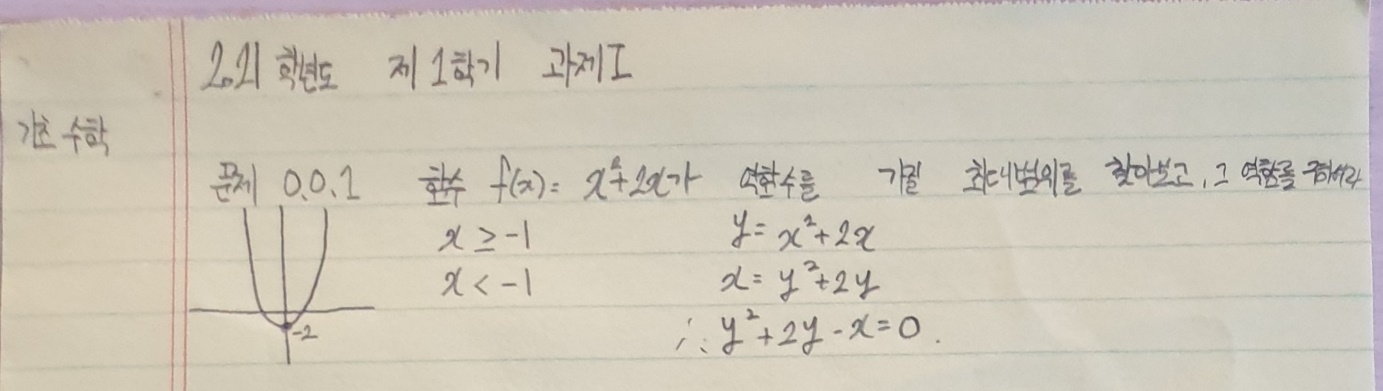 2.21 학년도 제 1학기 과제 I
기초 수학
문제 0.0.1 함수 f(x) = x²+2x가 역함수를 가질 최대범위를 찾아보고, 그 역함를 구하여라
x ≥ -1 y = x²+2x
x < -1 x = y²+2y
-2 ∴ y²+2y-x=0.